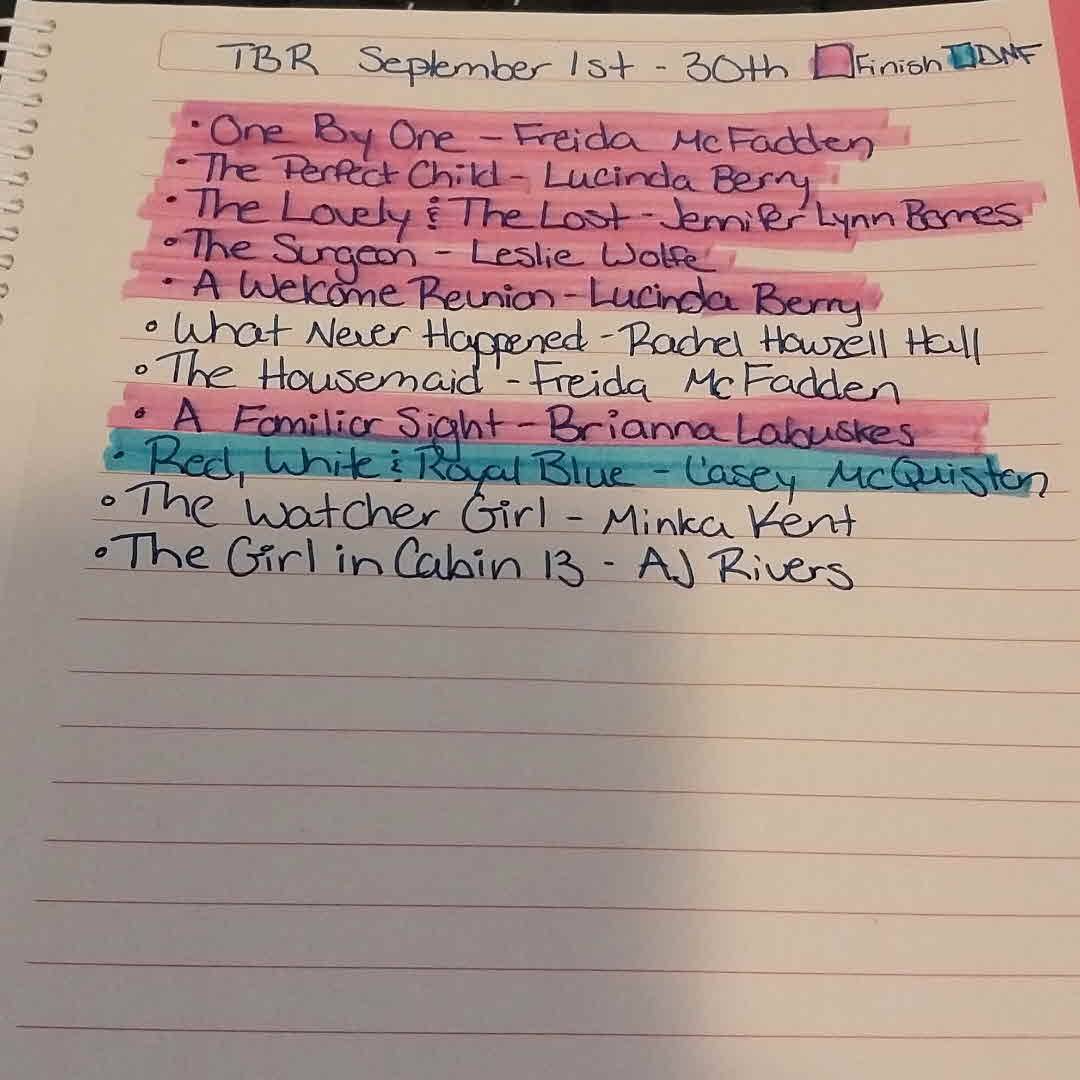 TBR September 1st - 30th Finish DNF
• One By One - Freida McFadden
• The Perfect Child - Lucinda Berry
• The Lovely & The Lost - Jennifer Lynn Barnes
• The Surgeon - Leslie Wolfe
• A Welcome Reunion - Lucinda Berry
• What Never Happened - Rachel Howzell Hall
• The Housemaid - Freida McFadden
• A Familiar Sight - Brianna Labuskes
• Red, White & Royal Blue - Casey McQuiston
• The Watcher Girl - Minka Kent
• The Girl in Cabin 13 - AJ Rivers